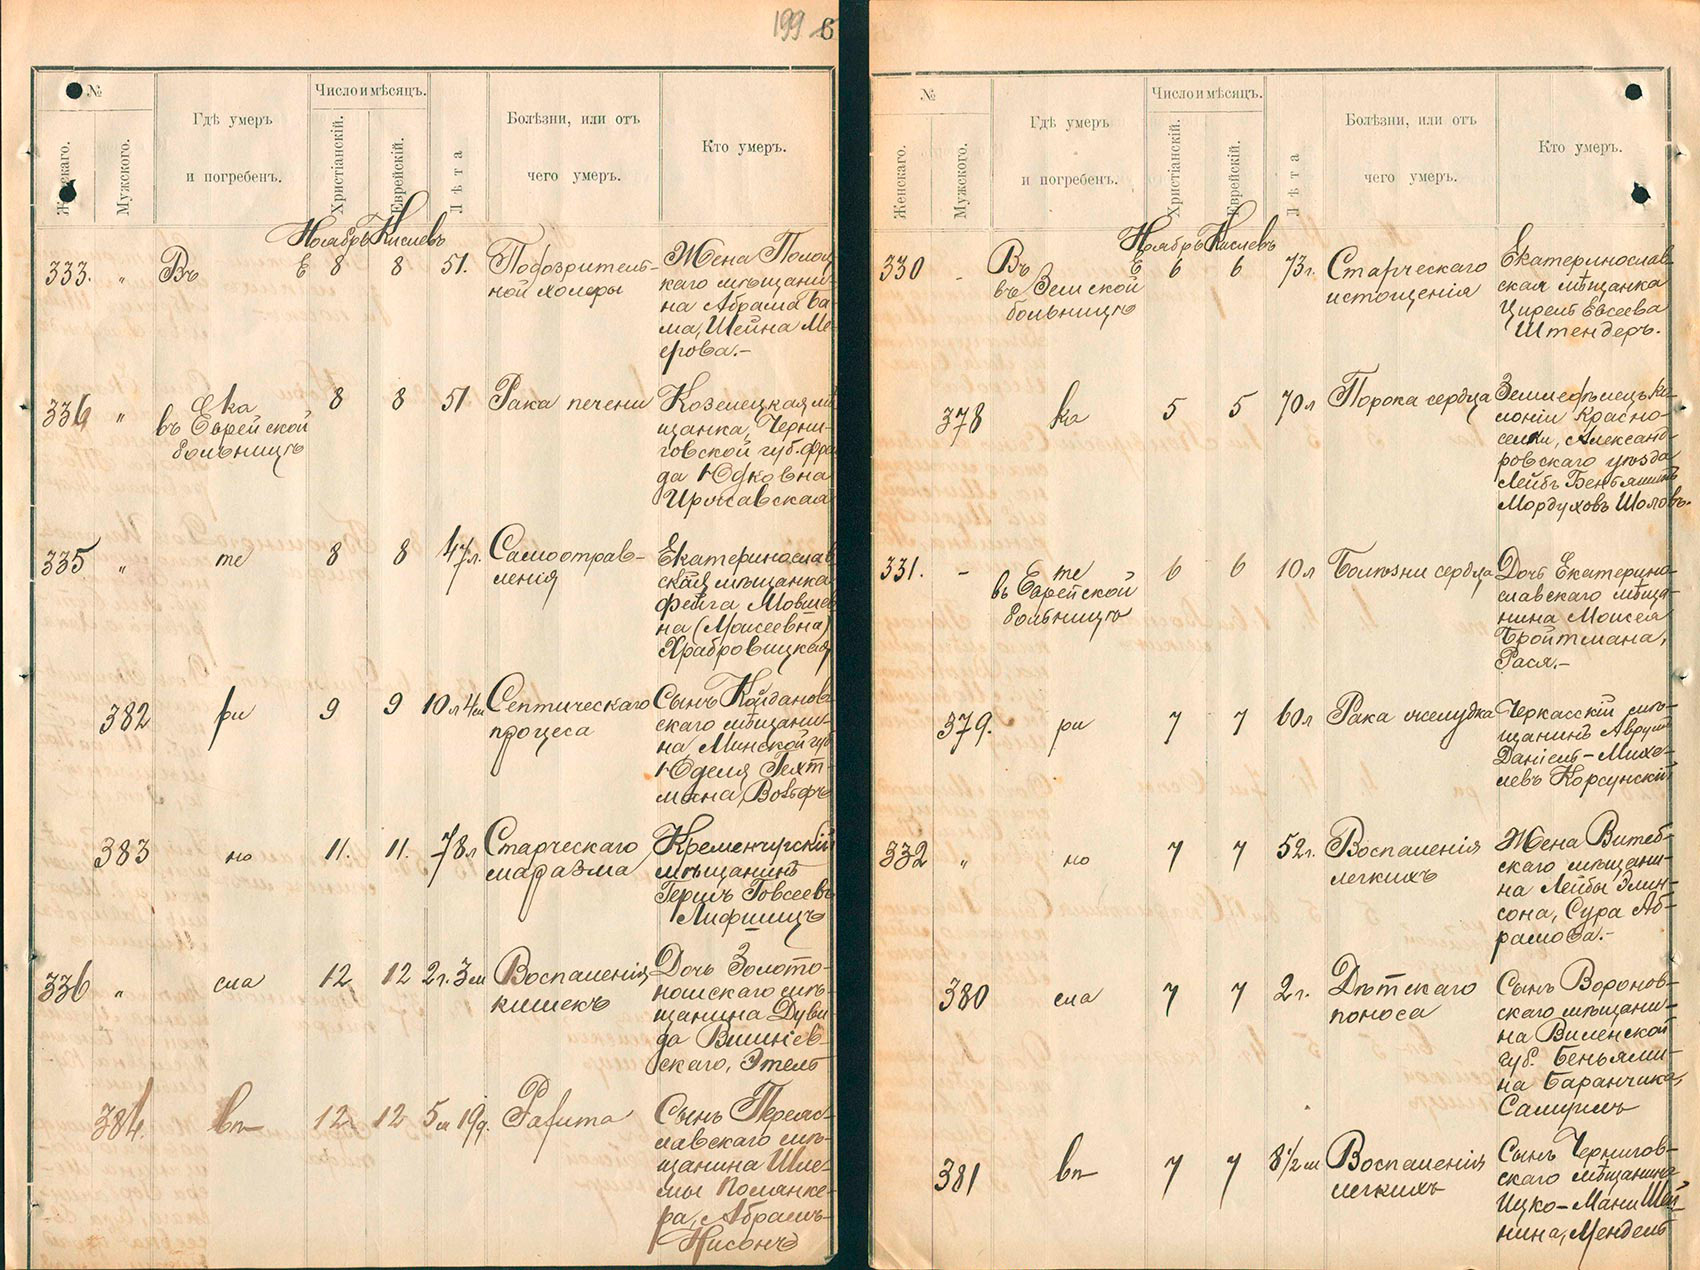 199 6
№
Женскаго.
Мужского.
Гдѣ умеръ
и погребенъ.
Число и мѣсяцъ.
Христіанскій.
Еврейскій.
Лѣта
Болѣзни, или отъ
чего умеръ.
Кто умеръ.
Ноябрь Кислевъ
333. " Въ Е 8 8 51. Подозритель-
ной холеры
Жена Полоц
каго мѣщани-
на Абрама
Шейна
334 " Ека
въ Еврейской
больницѣ
8 8 51 Рака печени
Козелецкая мѣ
щанка, Черни-
говской губ.
да Юдковна
335 " те 8 8 47 л. Самоотрав-
ленія
Екатеринослав
ская мѣщанка
Фейга Мовшев
на (Моисеевна)
Храбровицкая
382 ри 9 9 10 л 4 м Септическаго
процеса
Сынъ Койданов
скаго мѣщани-
на Минской губ
Юделя Гехт-
мана, Вольфъ
383 но 11. 11. 78 л Старческаго
маразма
Кременчугскій
мѣщанинъ
Гершъ Говсеевъ
Лифшицъ
336 " сла 12 12 2 г. 3 м Воспаленія
кишекъ
Дочь Золото-
ношскаго мѣ-
щанина Дуви
да Вишнев-
скаго, Этель
384. вѣ 12 12 5 м 19 д. Рахита
Сынъ Переяс-
лавскаго мѣ-
щанина Шле-
мы Поланке-
ра, Абрамъ-
Нисонъ
№
Женскаго.
Мужского.
Гдѣ умеръ
и погребенъ.
Число и мѣсяцъ.
Христіанскій.
Еврейскій.
Лѣта
Болѣзни, или отъ
чего умеръ.
Кто умеръ.
Ноябрь Кислевъ
330 - Въ Е
въ Земской
больницѣ
6 6 73 г. Старческаго
истощенія
Екатеринослав-
ская мѣщанка
Цирель Евсеева
Штендеръ.
378 ка 5 5 70 л Порока сердца
Земледѣлецъ ко-
лоніи Красно-
селки, Александ-
ровскаго уѣзда
Лейбъ Беньяминъ
Мордуховъ
331. - Е те
въ Еврейской
больницѣ
6 6 10 л Болѣзни сердца
Дочь Екатерино-
славскаго мѣща-
нина Моисея
Бройтмана,
Рася.-
379. ри 7 7 60 л Рака желудка
Черкасскій мѣ-
щанинъ Аврумъ
Даніель-Михе-
левъ Корсунскій
332 " но 7 7 52 г. Воспаленія
легкихъ
Жена Витеб-
скаго мѣщани-
на Лейбы Элин-
сона, Сура Аб-
рамова.-
380 сла 7 7 2 г. Дѣтскаго
поноса
Сынъ Воронов-
скаго мѣщани-
на Виленской
губ. Беньями-
на Баранчика,
Самуилъ
381 вѣ 7 7 8 1/2 м Воспаленія
легкихъ
Сынъ Чернигов-
скаго мѣщанина
Ицко-Мани Шей-
нина, Мендель